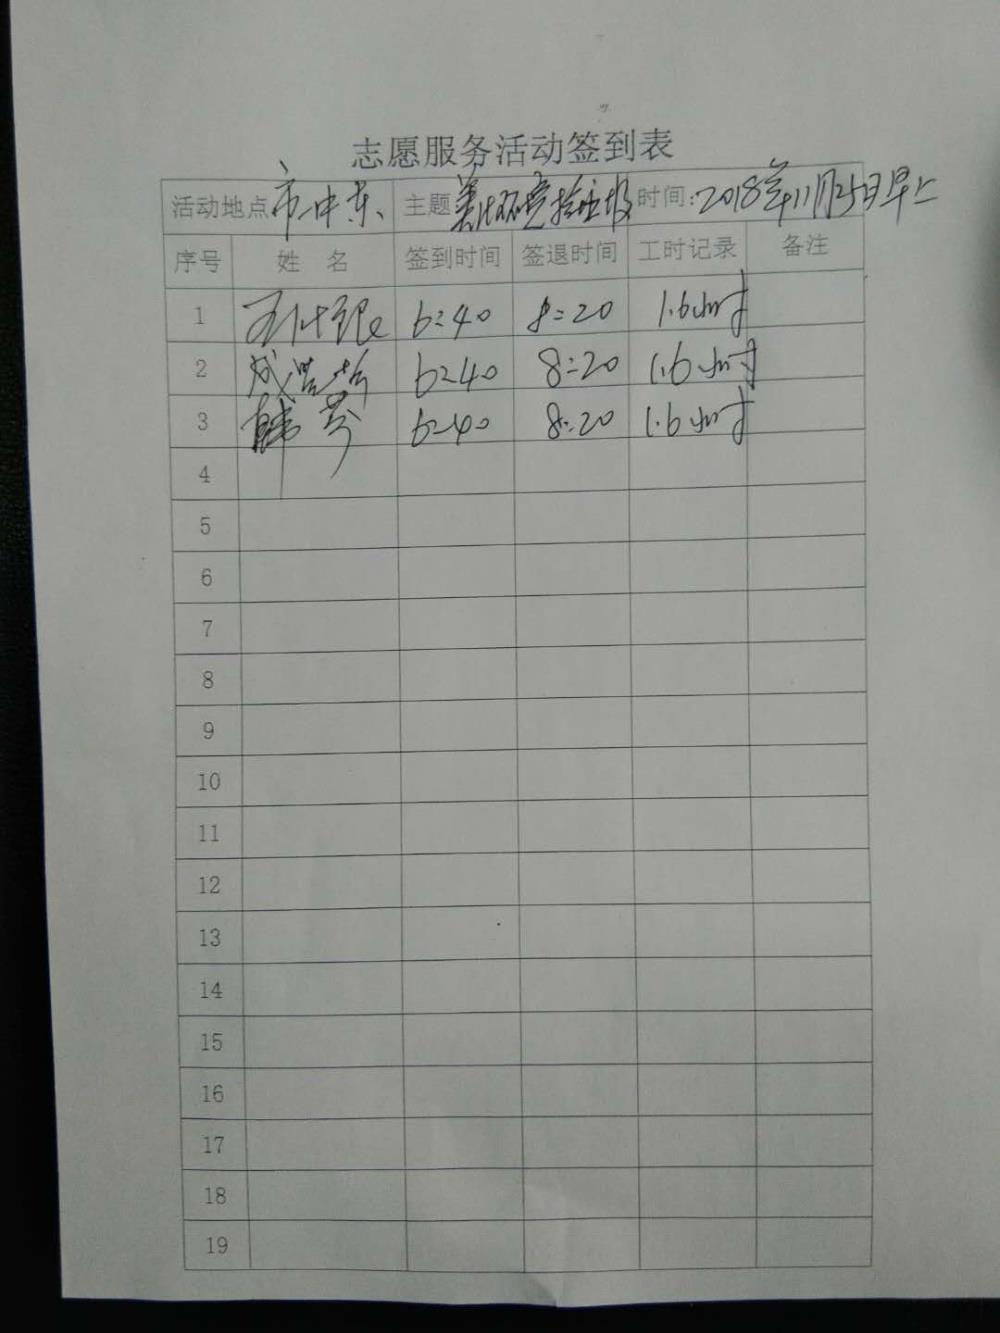 志愿服务活动签到表
活动地点 市一中东、 主题 美化环境捡垃圾 时间:2018年11月25日早上
序号 姓 名 签到时间 签退时间 工时记录 备注
1 6:40 8:20 1.6小时
2 6:40 8:20 1.6小时
3 韩芬 6:40 8:20 1.6小时
4
5
6
7
8
9
10
11
12
13
14
15
16
17
18
19